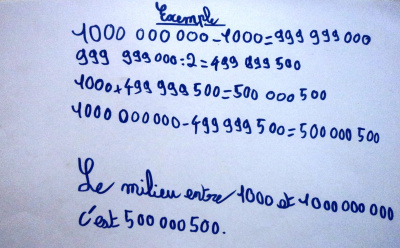 Exemple
1000 000 000-1000=999 999 000
999 999 000:2=499 999 500
1000+499 999 500=500 000 500
1000 000000-499 999 500=500 000 500
Le milieu entre 1000 et 1000 000 000
c'est 500 000 500.